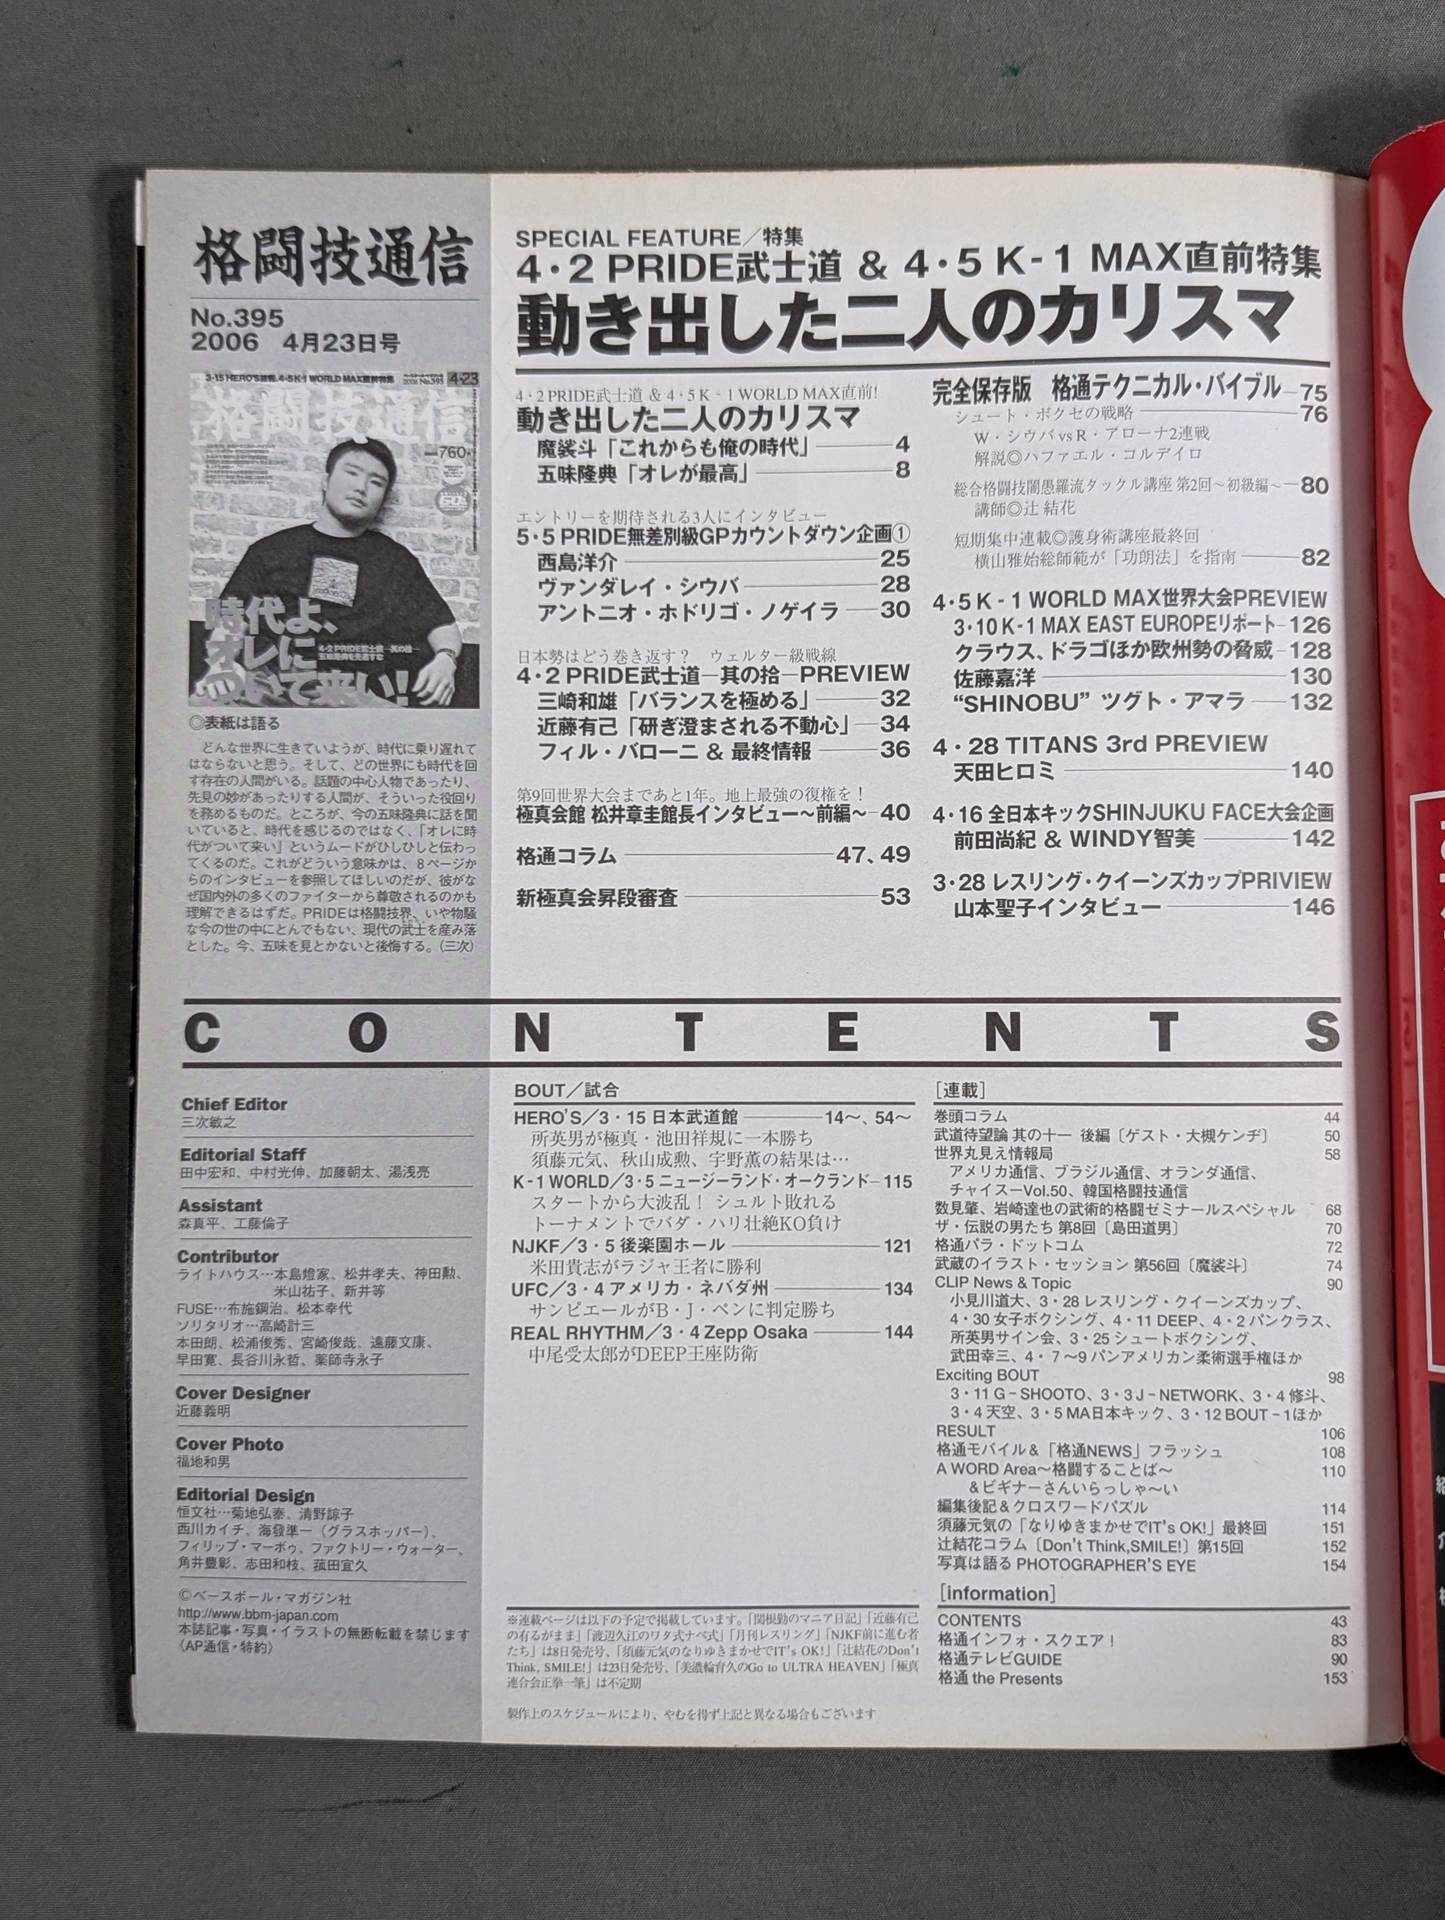 格闘技通信
No.395
2006 4月23日号
3・15 HERO'S速報、4・5 K-1 WORLD MAX直前特集
4・23
格闘技通信
760
時代よ、
オレに
ついて来い!
◎表紙は語る
どんな世界に生きていようが、時代に乗り遅れて
はならないと思う。そして、どの世界にも時代を回
す存在の人間がいる。話題の中心人物であったり、
先見の妙があったりする人間が、そういった役回り
を務めるものだ。ところが、今の五味隆典に話を聞
いていると、時代を感じるのではなく、「オレに時
代がついて来い」というムードがひしひしと伝わっ
てくるのだ。これがどういう意味かは、8ページか
らのインタビューを参照してほしいのだが、彼がな
ぜ国内外の多くのファイターから尊敬されるのかも
理解できるはずだ。PRIDEは格闘技界、いや物騒
な今の世の中にとんでもない、現代の武士を産み落
とした。今、五味を見とかないと後悔する。(三次)
SPECIAL FEATURE/特集
4・2 PRIDE武士道 & 4・5 K-1 MAX直前特集
動き出した二人のカリスマ
4・2 PRIDE武士道 & 4・5 K-1 WORLD MAX直前!
動き出した二人のカリスマ
魔裟斗「これからも俺の時代」 4
五味隆典「オレが最高」 8
エントリーを期待される3人にインタビュー
5・5 PRIDE無差別級GPカウントダウン企画①
西島洋介 25
ヴァンダレイ・シウバ 28
アントニオ・ホドリゴ・ノゲイラ 30
日本勢はどう巻き返す? ウェルター級戦線
4・2 PRIDE武士道―其の拾―PREVIEW
三崎和雄「バランスを極める」 32
近藤有己「研ぎ澄まされる不動心」 34
フィル・バローニ & 最終情報 36
第9回世界大会まであと1年。地上最強の復権を!
極真会館 松井章圭館長インタビュー～前編～ 40
格通コラム 47、49
新極真会昇段審査 53
完全保存版 格通テクニカル・バイブル 75
シュート・ボクセの戦略 76
W・シウバ vs R・アローナ2連戦
解説◎ハファエル・コルデイロ
総合格闘技闇愚羅流タックル講座 第2回～初級編～ 80
講師◎辻 結花
短期集中連載◎護身術講座最終回
横山雅始総師範が「功朗法」を指南 82
4・5 K-1 WORLD MAX世界大会PREVIEW
3・10 K-1 MAX EAST EUROPEリポート 126
クラウス、ドラゴほか欧州勢の脅威 128
佐藤嘉洋 130
“SHINOBU” ツグト・アマラ 132
4・28 TITANS 3rd PREVIEW
天田ヒロミ 140
4・16 全日本キックSHINJUKU FACE大会企画
前田尚紀 & WINDY智美 142
3・28 レスリング・クイーンズカップPRIVIEW
山本聖子インタビュー 146
CONTENTS
Chief Editor
三次敏之
Editorial Staff
田中宏和、中村光伸、加藤朝太、湯浅亮
Assistant
森真平、工藤倫子
Contributor
ライトハウス…本島燈家、松井孝夫、神田勲、
米山祐子、新井等
FUSE…布施鋼治、松本幸代
ソリタリオ…高崎計三
本田朗、松浦俊秀、宮崎俊哉、遠藤文康、
早田寛、長谷川永哲、薬師寺永子
Cover Designer
近藤義明
Cover Photo
福地和男
Editorial Design
恒文社…菊地弘泰、清野諒子
西川カイチ、海發準一（グラスホッパー）、
フィリップ・マーボゥ、ファクトリー・ウォーター、
角井豊彰、志田和枝、菰田宜久
©ベースボール・マガジン社
http://www.bbm-japan.com
本誌記事・写真・イラストの無断転載を禁じます
（AP通信・特約）
BOUT/試合
HERO'S/3・15 日本武道館 14～、54～
所英男が極真・池田祥規に一本勝ち
須藤元気、秋山成勲、宇野薫の結果は…
K-1 WORLD/3・5 ニュージーランド・オークランド 115
スタートから大波乱! シュルト敗れる
トーナメントでバダ・ハリ壮絶KO負け
NJKF/3・5 後楽園ホール 121
米田貴志がラジャ王者に勝利
UFC/3・4 アメリカ・ネバダ州 134
サンピエールがB・J・ペンに判定勝ち
REAL RHYTHM/3・4 Zepp Osaka 144
中尾受太郎がDEEP王座防衛
※連載ページは以下の予定で掲載しています。「関根勤のマニア日記」「近藤有己
の有るがまま」「渡辺久江のワタ式ナベ式」「月刊レスリング」「NJKF前に進む者
たち」は8日発売号、「須藤元気のなりゆきまかせでIT's OK!」「辻結花のDon't
Think, SMILE!」は23日発売号、「美濃輪育久のGo to ULTRA HEAVEN」「極真
連合会正拳一筆」は不定期
製作上のスケジュールにより、やむを得ず上記と異なる場合もございます
[連載]
巻頭コラム 44
武道待望論 其の十一 後編〔ゲスト・大槻ケンヂ〕 50
世界丸見え情報局 58
アメリカ通信、ブラジル通信、オランダ通信、
チャイスーVol.50、韓国格闘技通信
数見肇、岩崎達也の武術的格闘ゼミナールスペシャル 68
ザ・伝説の男たち 第8回〔島田道男〕 70
格通パラ・ドットコム 72
武蔵のイラスト・セッション 第56回〔魔裟斗〕 74
CLIP News & Topic 90
小見川道大、3・28 レスリング・クイーンズカップ、
4・30 女子ボクシング、4・11 DEEP、4・2 パンクラス、
所英男サイン会、3・25 シュートボクシング、
武田幸三、4・7～9 パンアメリカン柔術選手権ほか
Exciting BOUT 98
3・11 G-SHOOTO、3・3 J-NETWORK、3・4 修斗、
3・4 天空、3・5 MA日本キック、3・12 BOUT-1ほか
RESULT 106
格通モバイル&「格通NEWS」フラッシュ 108
A WORD Area～格闘することば～ 110
&ビギナーさんいらっしゃ～い
編集後記&クロスワードパズル 114
須藤元気の「なりゆきまかせでIT's OK!」最終回 151
辻結花コラム〔Don't Think,SMILE!〕第15回 152
写真は語る PHOTOGRAPHER'S EYE 154
[information]
CONTENTS 43
格通インフォ・スクエア! 83
格通テレビGUIDE 90
格通 the Presents 153